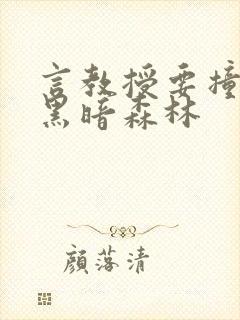 言教授要撞
黑暗森林
顏落清